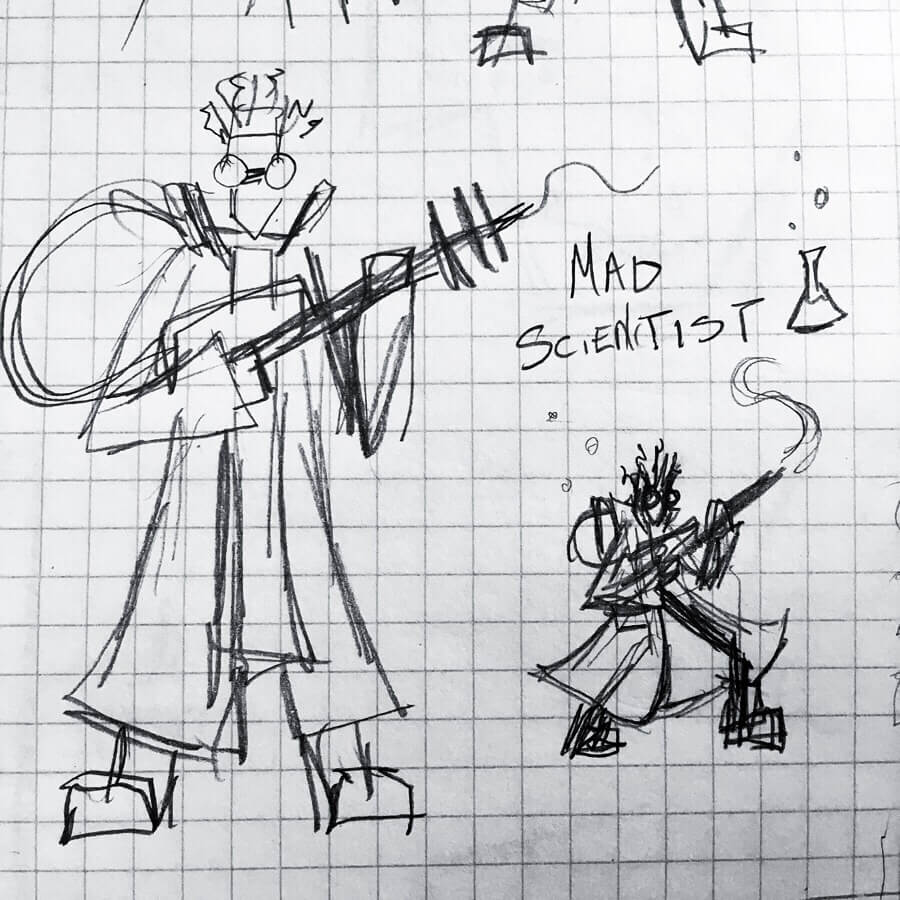 MAD
SCIENTIST